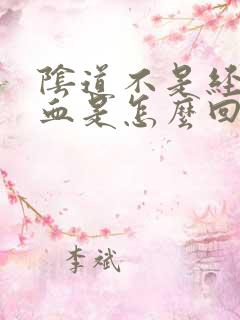 陰道不是經
血是怎麼回
李斌